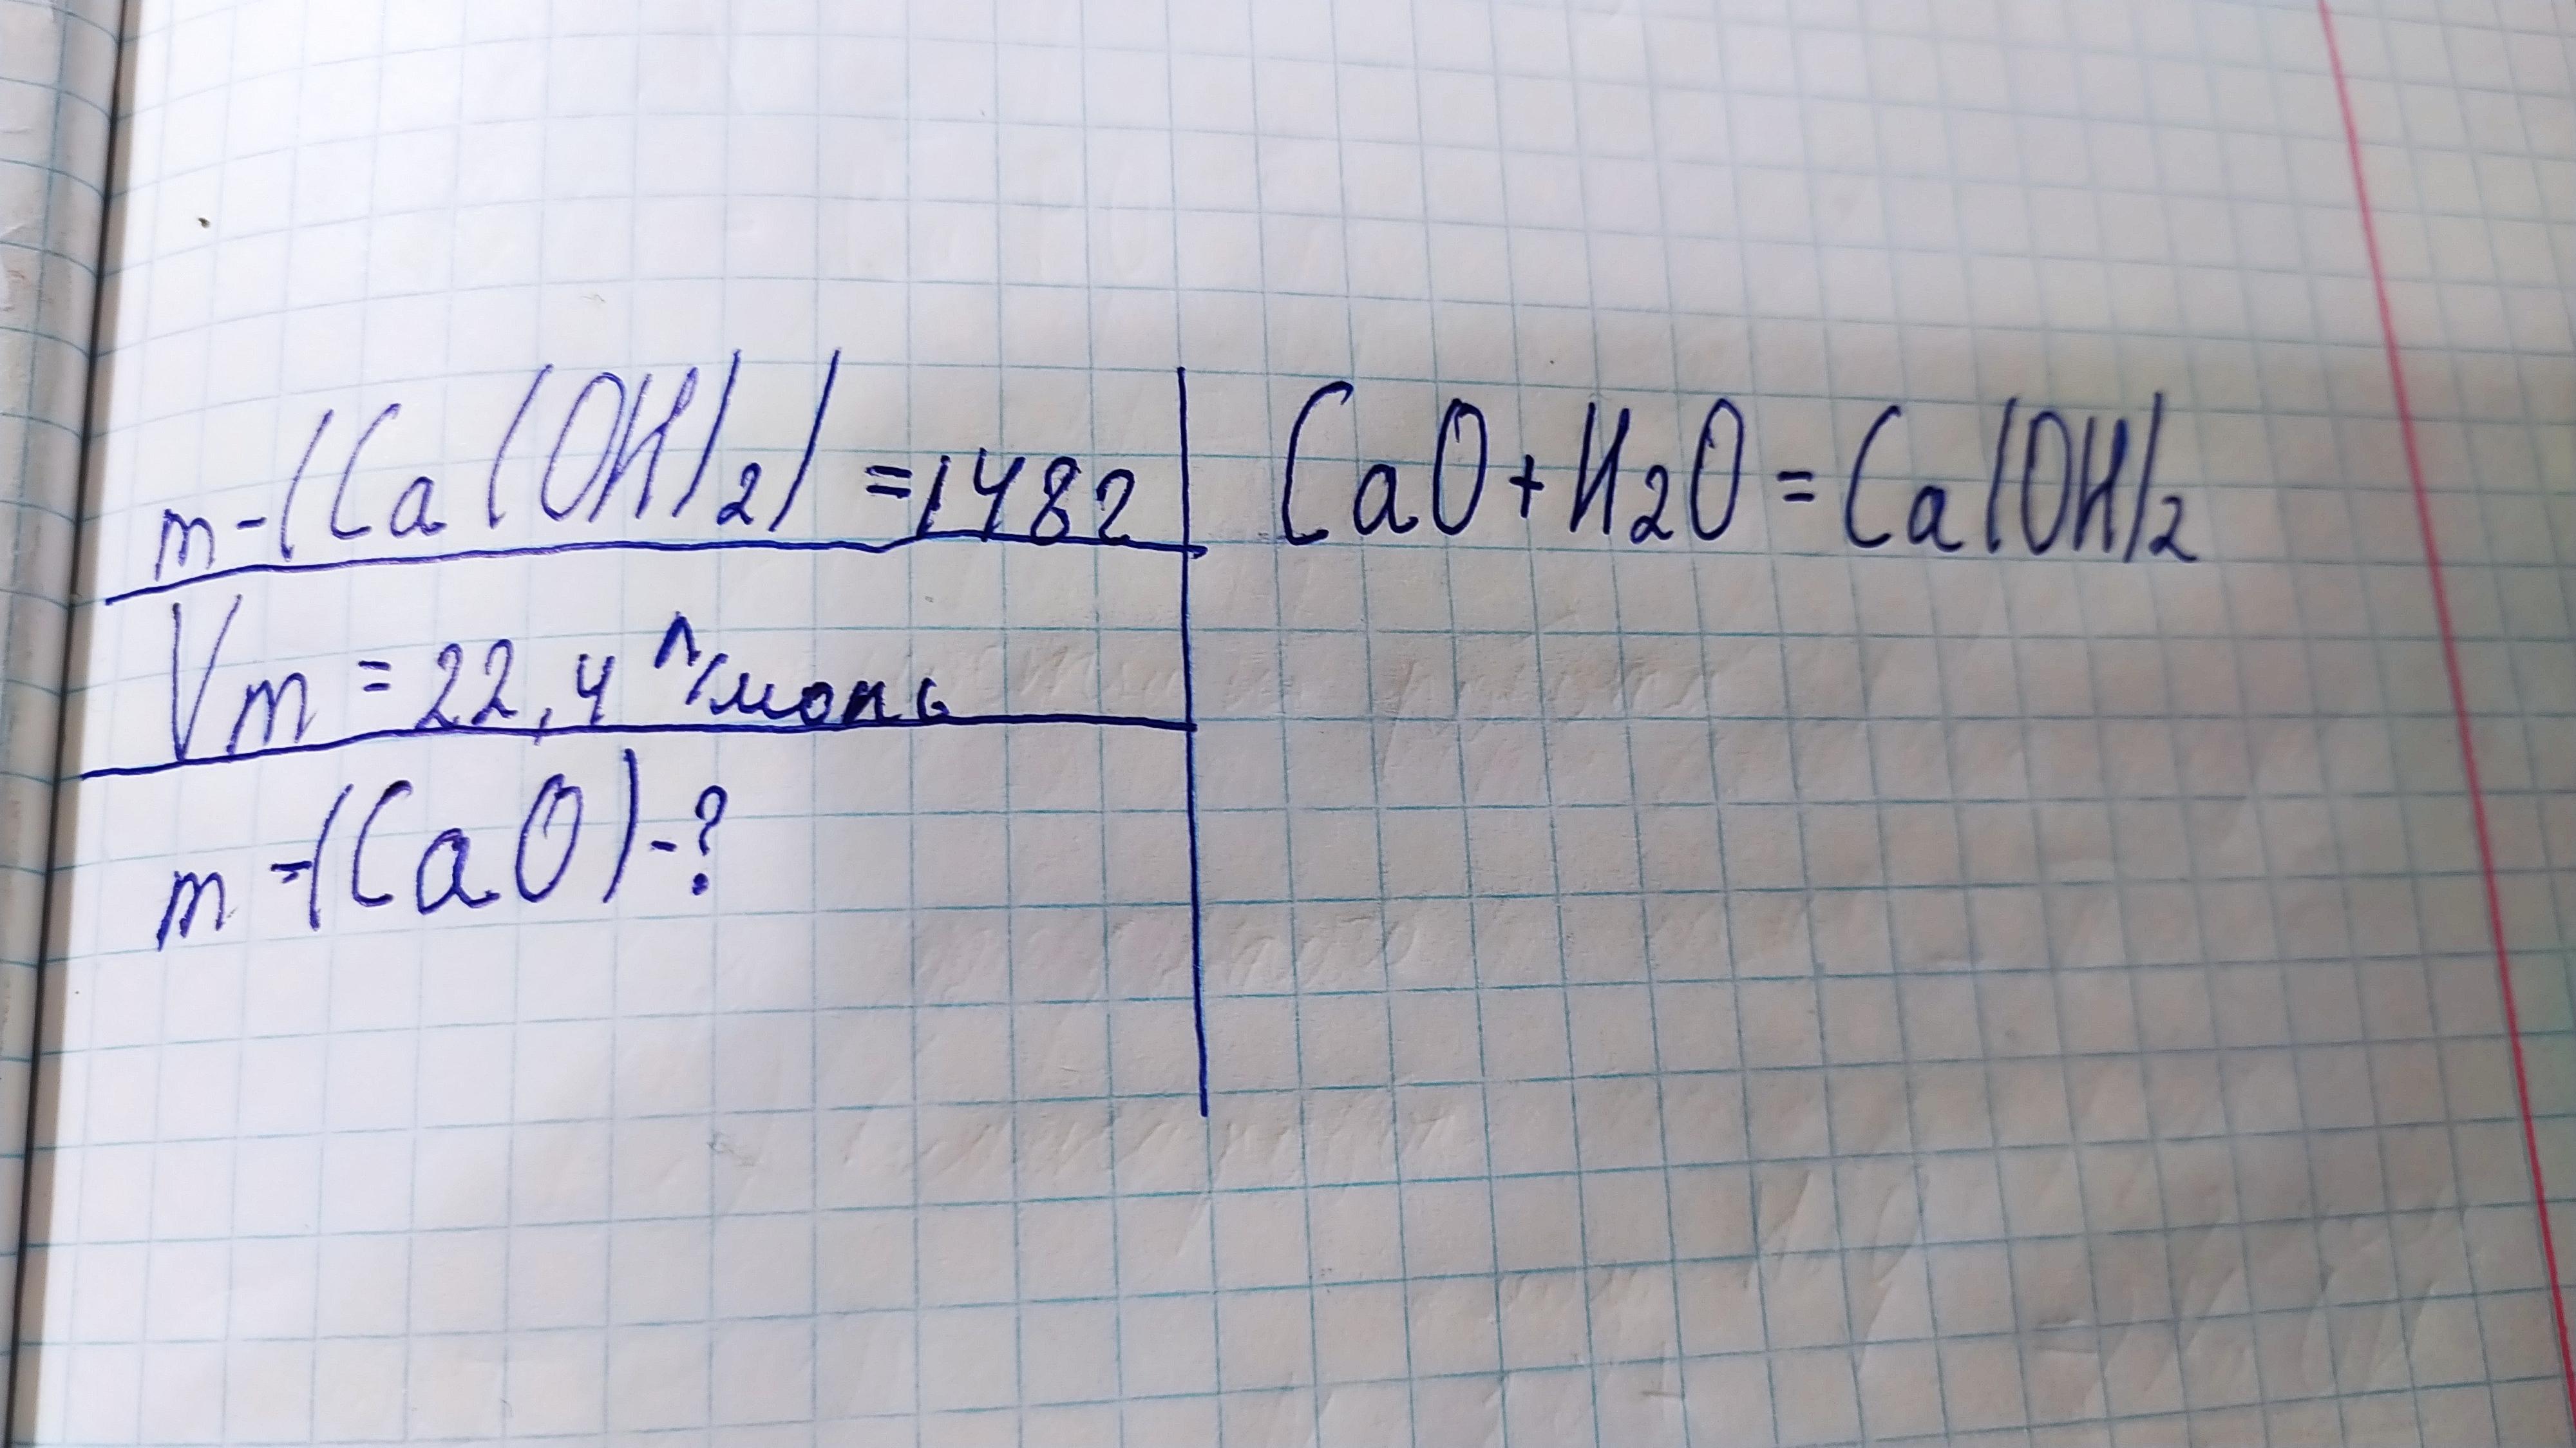 m-(Ca(OH)2) =148г
Vm = 22,4 л/моль
m-(CaO)-?
CaO+H2O=Ca(OH)2